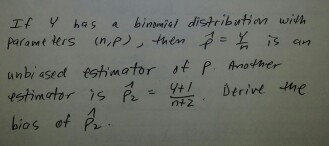 If Y has a binomial distribution with
parameters (n,p), then p̂ = Y/n is an
unbiased estimator of P. Another
estimator is p̂₂ = Y+1/n+2. Derive the
bias of p̂₂.